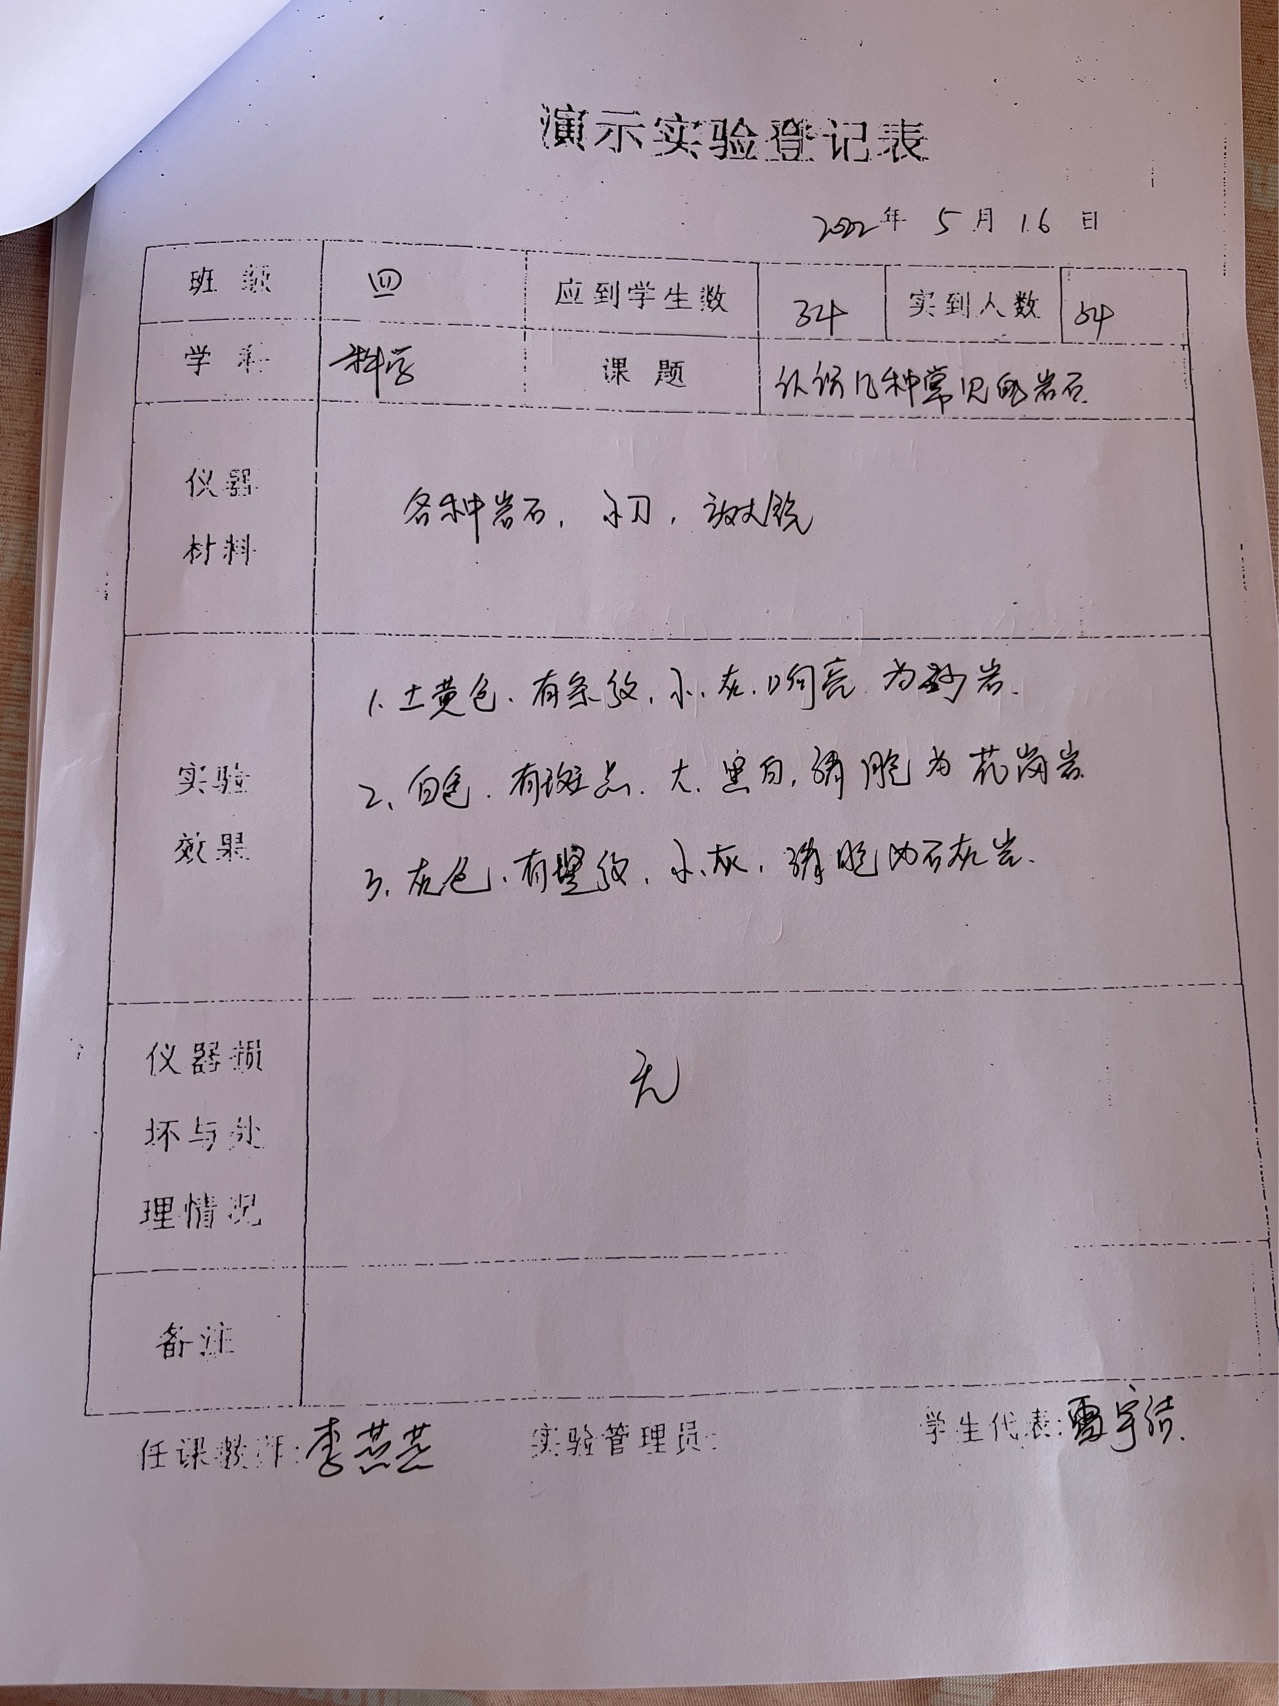 演示实验登记表
2022年 5月 16日
班级 四 应到学生数 34 实到人数 34
学科 科学 课题 认识几种常见的岩石
仪器
材料
各种岩石，小刀，放大镜
实验
效果
1、土黄色、有条纹、小、灰、明亮 为砂岩.
2、白色、有斑点、大、黑白, 为花岗岩
3、灰色、有竖纹、小、灰, 为石灰岩.
仪器损
坏与处
理情况
无
备注
任课教师:李燕燕 实验管理员: 学生代表:雷宇洁